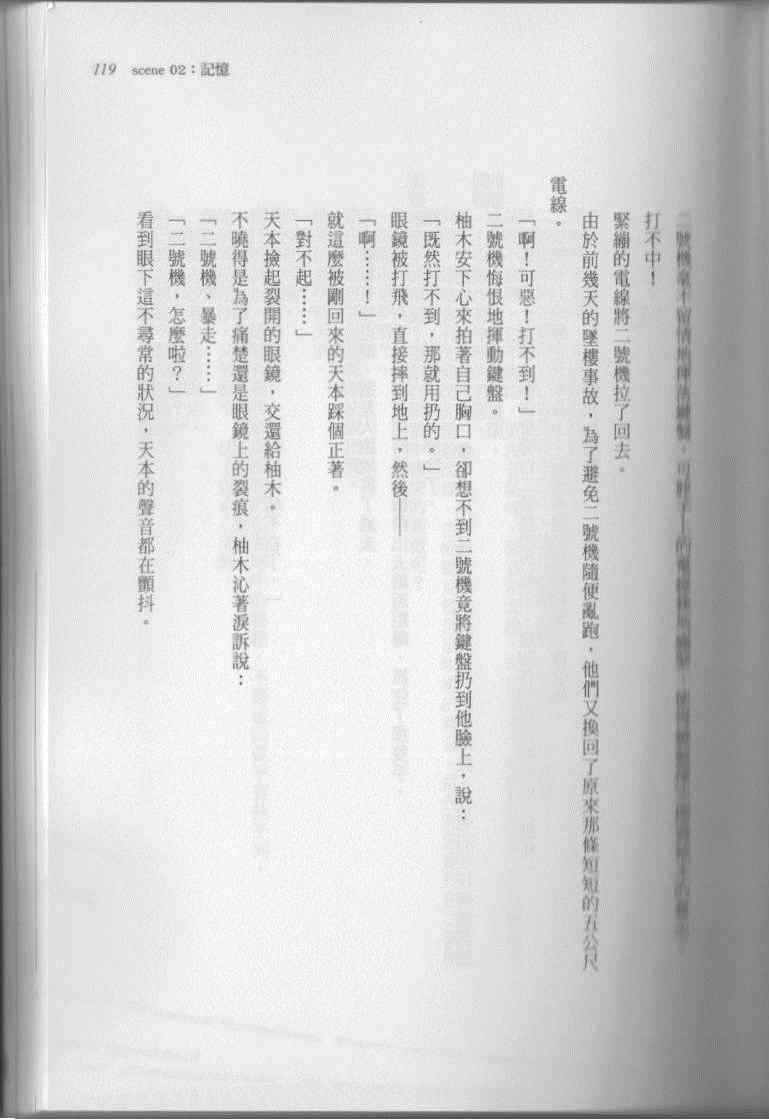 119 scene 02：記憶
二號機毫不留情地揮
打不中！
緊繃的電線將二號機拉了回去。
由於前幾天的墜樓事故，為了避免二號機隨便亂跑，他們又換回了原來那條短短的五公尺
電線。
「啊！可惡！打不到！」
二號機悔恨地揮動鍵盤。
柚木安下心來拍著自己胸口，卻想不到二號機竟將鍵盤扔到他臉上，說：
「既然打不到，那就用扔的。」
眼鏡被打飛，直接摔到地上，然後——
「啊……！」
就這麼被剛回來的天本踩個正著。
「對不起……」
天本撿起裂開的眼鏡，交還給柚木。
不曉得是為了痛楚還是眼鏡上的裂痕，柚木沁著淚訴說：
「二號機、暴走……」
「二號機，怎麼啦？」
看到眼下這不尋常的狀況，天本的聲音都在顫抖。